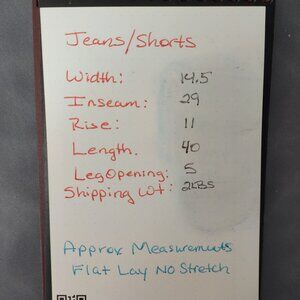 Jeans/Shorts
Width: 14.5
Inseam: 29
Rise: 11
Length. 40
Leg Opening: 5
Shipping Wt: 2LBS
Approx Measurements
Flat Lay No Stretch